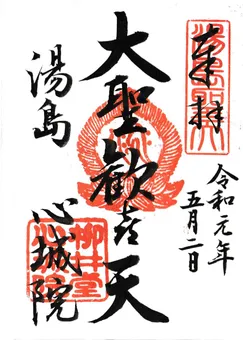 奉拝
令和元年
五月二日
大聖歓喜天
湯島
心城院
柳井堂